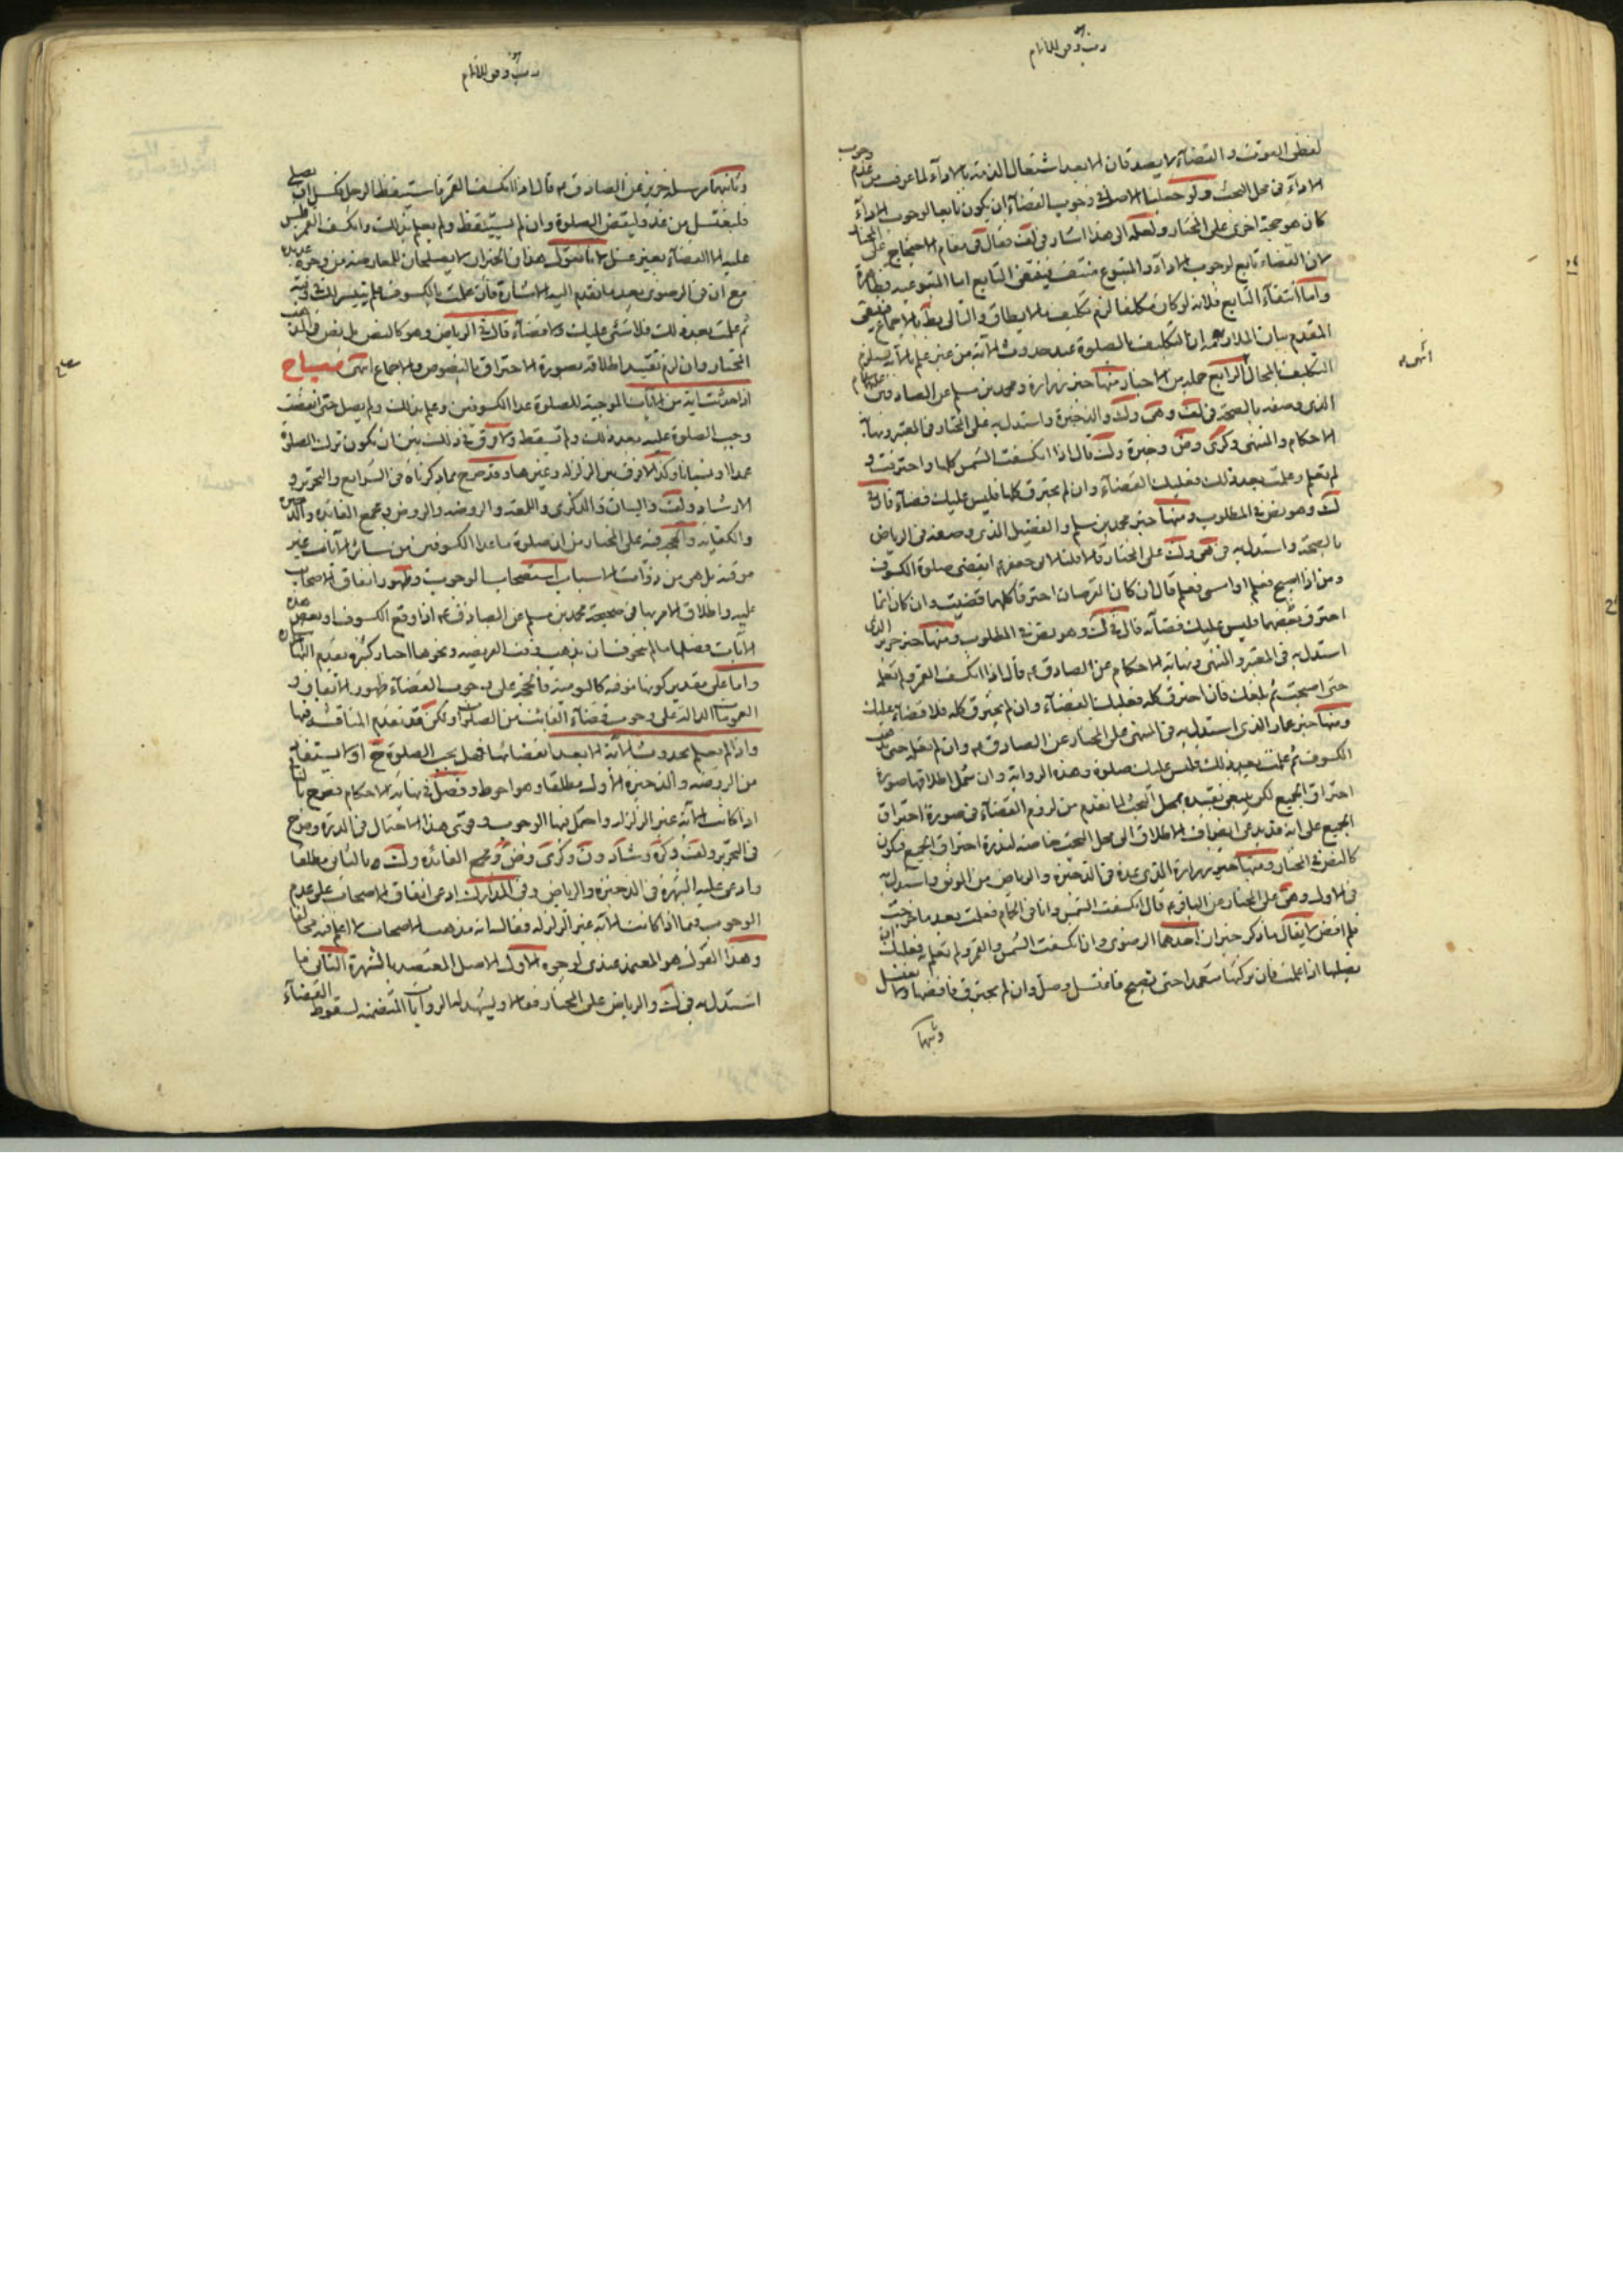 لفظی الفوت والقضاء لا یصدقان الا بعد اشتغال الذمة بالاداء لما عرف من عدم وجوب
الاداء فی محل البحث ولو جعلنا الاصل فی وجوب القضاء ان یکون تابعا لوجوب الاداء
کان هو حجة اخری علی المختار ولعله الی هذا اشار فی لف فقال فی مقام الاحتجاج علی المختار
لان القضاء تابع لوجوب الاداء والمتبوع منتف فینتفی التابع اما المتبوعیه فظاهرة
واما انتفاء التابع فلانه لو کان مکلفا لزم تکلیف ما لا یطاق والتالی بط بالاجماع
المقدم بیان الملازمه ان التکلیف بالصلوة عند حدوث الآیة من غیر علم بالآیه یستلزم
التکلیف المحال الرابع جمله من الاخبار منها خبر زرارة ومحمد بن مسلم عن الصادق
الذی وصفه بالصحة فی لف وهی ولک والذخیرة واستدل به علی المختار فی المعتبر ونهایة
الاحکام والمنتهی وکری وض وخیرة ولک قال اذا انکسفت الشمس کلها واحترقت و
لم تعلم وعلمت بعد ذلک فعلیک القضاء وان لم یحترق کلها فلیس علیک قضاء قال فی
لک وهو نص فی المطلوب ومنها خبر محمد بن مسلم والفضیل الذی وصفه فی الریاض
بالصحة واستدل به فی هی ولک علی المختار قالا قلنا لابی جعفر ع ایقضی صلوة الکسوف
ومن اذا اصبح فعلم او امسی فعلم قال ان کان القرصان احترقا کلهما قضیت وان کان انما
احترق بعضهما فلیس علیک قضآء قال فی لک وهو نص فی المطلوب ومنها خبر حریز الذی
استدل به فی المعتبر والمنتهی ونهایة الاحکام عن الصادق ع قال اذا انکسف القمر ولم تعلم
حتی اصبحت ثم بلغک فان احترق کله فعلیک القضاء وان لم یحترق کله فلا قضاء علیک
ومنها خبر عمار الذی استدل به فی المنتهی علی المختار عن الصادق ع وان لم تعلم حتی یذهب
الکسوف ثم علمت بعد ذلک فلیس علیک صلوة وهذه الروایة وان شمل اطلاقها صورة
احتراق الجمیع لکن ینبغی تقییده بمحل البحث لما تقدم من لزوم القضاء فی صورة احتراق
الجمیع علی انه قد یدعی انصراف الاطلاق الی محل البحث خاصة لندرة احتراق الجمیع فیکون
کالنص فی المختار ومنها خبر زرارة الذی عده فی الذخیرة والریاض من الموثق واستدل به
فی الاول وهی علی المختار عن الباقر ع قال انکسفت الشمس وانا فی الحمام فعلمت بعد ما خرجت
فلم اقض لا یقال ما ذکر خبران احدهما الرضوی وان انکسفت الشمس والقمر ولم تعلم به فعلیک ان
تصلیها اذا علمت فان ترکتها متعمدا حتی تصبح فاغتسل وصل وان لم یحترق فاقضها ولا تغتسل
وثانیها
وثانیهما مرسلة حریز عن الصادق ع قال اذا انکسف القمر فاستیقظ الرجل فکسل ان یصلی
فلیغتسل من غد ولیقض الصلوة وان لم یستیقظ ولم یعلم بذلک وانکسف القمر فلیس
علیه الا القضاء بغیر غسل لانا نقول هذان الخبران لا یصلحان للمعارضة من وجوه عدیدة
مع ان فی الرضوی بعد ما تقدم الیه الاشارة فان علمت بالکسوف فلم یتیسر لک
ثم علمت بعد ذلک فلا شئ علیک ولا قضاء قال فی الریاض وهو کالنص بل نص فی المذهب
المختار وان لزم تقیید اطلاقه بصورة الاحتراق بالنصوص والاجماع انتهی مصباح
اذا حدثت آیة من الآیات الموجبة للصلوة عدا الکسوفین وعلم بذلک ولم یصل حتی انقضت
وجب الصلوة علیه بعد ذلک ولم تسقط ولا فرق فی ذلک بین ان یکون ترک الصلوة
عمدا او نسیانا وکذا لا فرق بین الزلزله وغیرها وقد صرح بما ذکرناه فی الشرایع والتحریر و
الارشاد ولف والبیان والذکری واللمعة والروضه والروض ومجمع الفائده والذخیره
والکفایه والحجه فیه علی المختار من ان صلوة ما عدا الکسوفین من سائر الآیات غیر
موقته بل هی من ذوات الاسباب استصحاب الوجوب وظهور اتفاق الاصحاب
علیه واطلاق الامر بها فی صحیحة محمد بن مسلم عن الصادق ع اذا وقع الکسوف او بعض هذه
الآیات فصلها ما لم تتخوف ان یذهب وقت الفریضه ونحوها اخبار کثیره تقدم الیها الاشاره
واما علی تقدیر کونها موقته کالیومیة فالحجة علی وجوب القضاء ظهور الاتفاق و
العمومات الدالة علی وجوب قضاء الفائتة من الصلوات ولکن قد تقدم المناقشه فیها
واذا لم یعلم بحدوث الآیة الا بعد انقضائها فهل یجب الصلوة ح او لا یستفاد
من الروضه والذخیرة الاول مطلقا وهو احوط وفصل فی نهایه الاحکام فصرح بالثانی
اذا کانت الآیة غیر الزلزله واحتمل فیها الوجوب وقوی هذا الاحتمال فی الدرة وصرح
فی التحریر ولف وکره وشاد ون وکری وض ومجمع الفائده ولک بالثانی مطلقا
وادعی علیه الشهرة فی الذخیرة والریاض وفی المدارک ادعی اتفاق الاصحاب علی عدم
الوجوب فیما اذا کانت الآیة غیر الزلزله فقال انه مذهب الاصحاب لا اعلم فیه مخالفا
وهذا القول هو المعتمد عندی لوجوه الاول الاصل المعتضد بالشهرة الثانی ما
استدل به فی لک والریاض علی المختار فقالا ویشهد له الروایات المتضمنه لسقوط القضاء